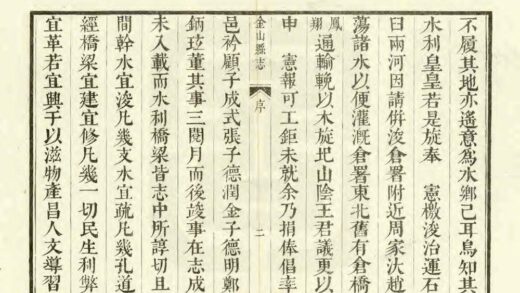 不履其地亦遙意爲水鄉已耳烏知其
水利皇皇若是旋奉　憲檄浚治運石
臼兩河因請倂浚倉署附近周家汏趙
蕩諸水以便灌漑倉署東北舊有倉橋
鳳翔通輸輓以木旋圯山陰王君議更以
申　憲報可工鉅未就余乃捐俸倡率
金山縣志　序　二
邑衿顧子成式張子德潤金子德明鄭
董其事三閱月而後竣事在志成
未入載而水利橋梁皆志中所諄切且
間幹水宜浚凡幾支水宜疏凡幾孔道
經橋梁宜建宜修凡幾一切民生利弊
宜革若宜興于以滋物產昌人文導習